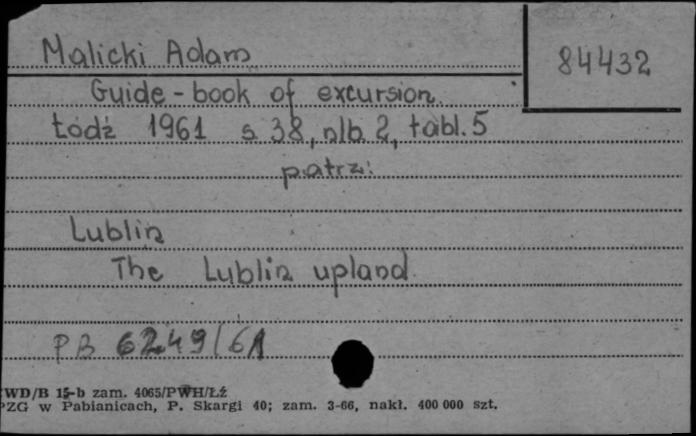 Malicki Adam
84432
Guide-book of excursion.
Łódź 1961 s. 38, nlb. 2, tabl. 5
patrz:
Lublin
The Lublin upland
PB 6249/61
WD/B 15-b zam. 4065/PWH/Łź
PZG w Pabianicach, P. Skargi 40; zam. 3-66, nakł. 400 000 szt.